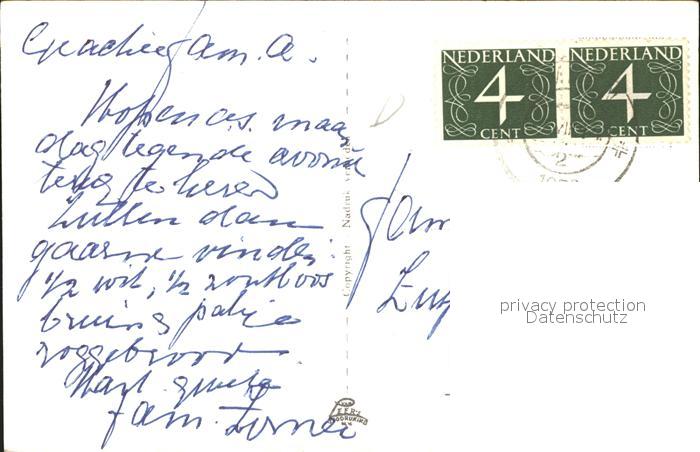 fam. A.
Hopen a.s. maan
dag tegen de avond
terug te keren
Zullen dan
gaarne vinden:
1/2 wit, 1/2 zoutloos
bruin, pakje
roggebrood
Hart. groeten
fam.
Copyright Nadruk verboden
NEDERLAND
4
CENT
NEDERLAND
4
CENT
fam
Zutp
privacy protection
Datenschutz